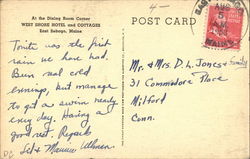 At the Dining Room Corner
WEST SHORE HOTEL and COTTAGES
East Sebago, Maine
POST CARD
4-
AUG
5
MAINE
Tonite was the first
rain we have had.
Been real cold
evenings, but manage
to get a swim nearly
every day. Having a
good rest. Regards
Mr. & Mrs. D. L. Jones & family
31 Commodore Place
Milford
Conn.